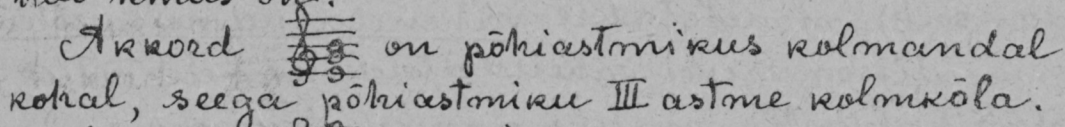 Akkord on põhiastmikus kolmandal
kohal, seega põhiastmiku III astme kolmkõla.